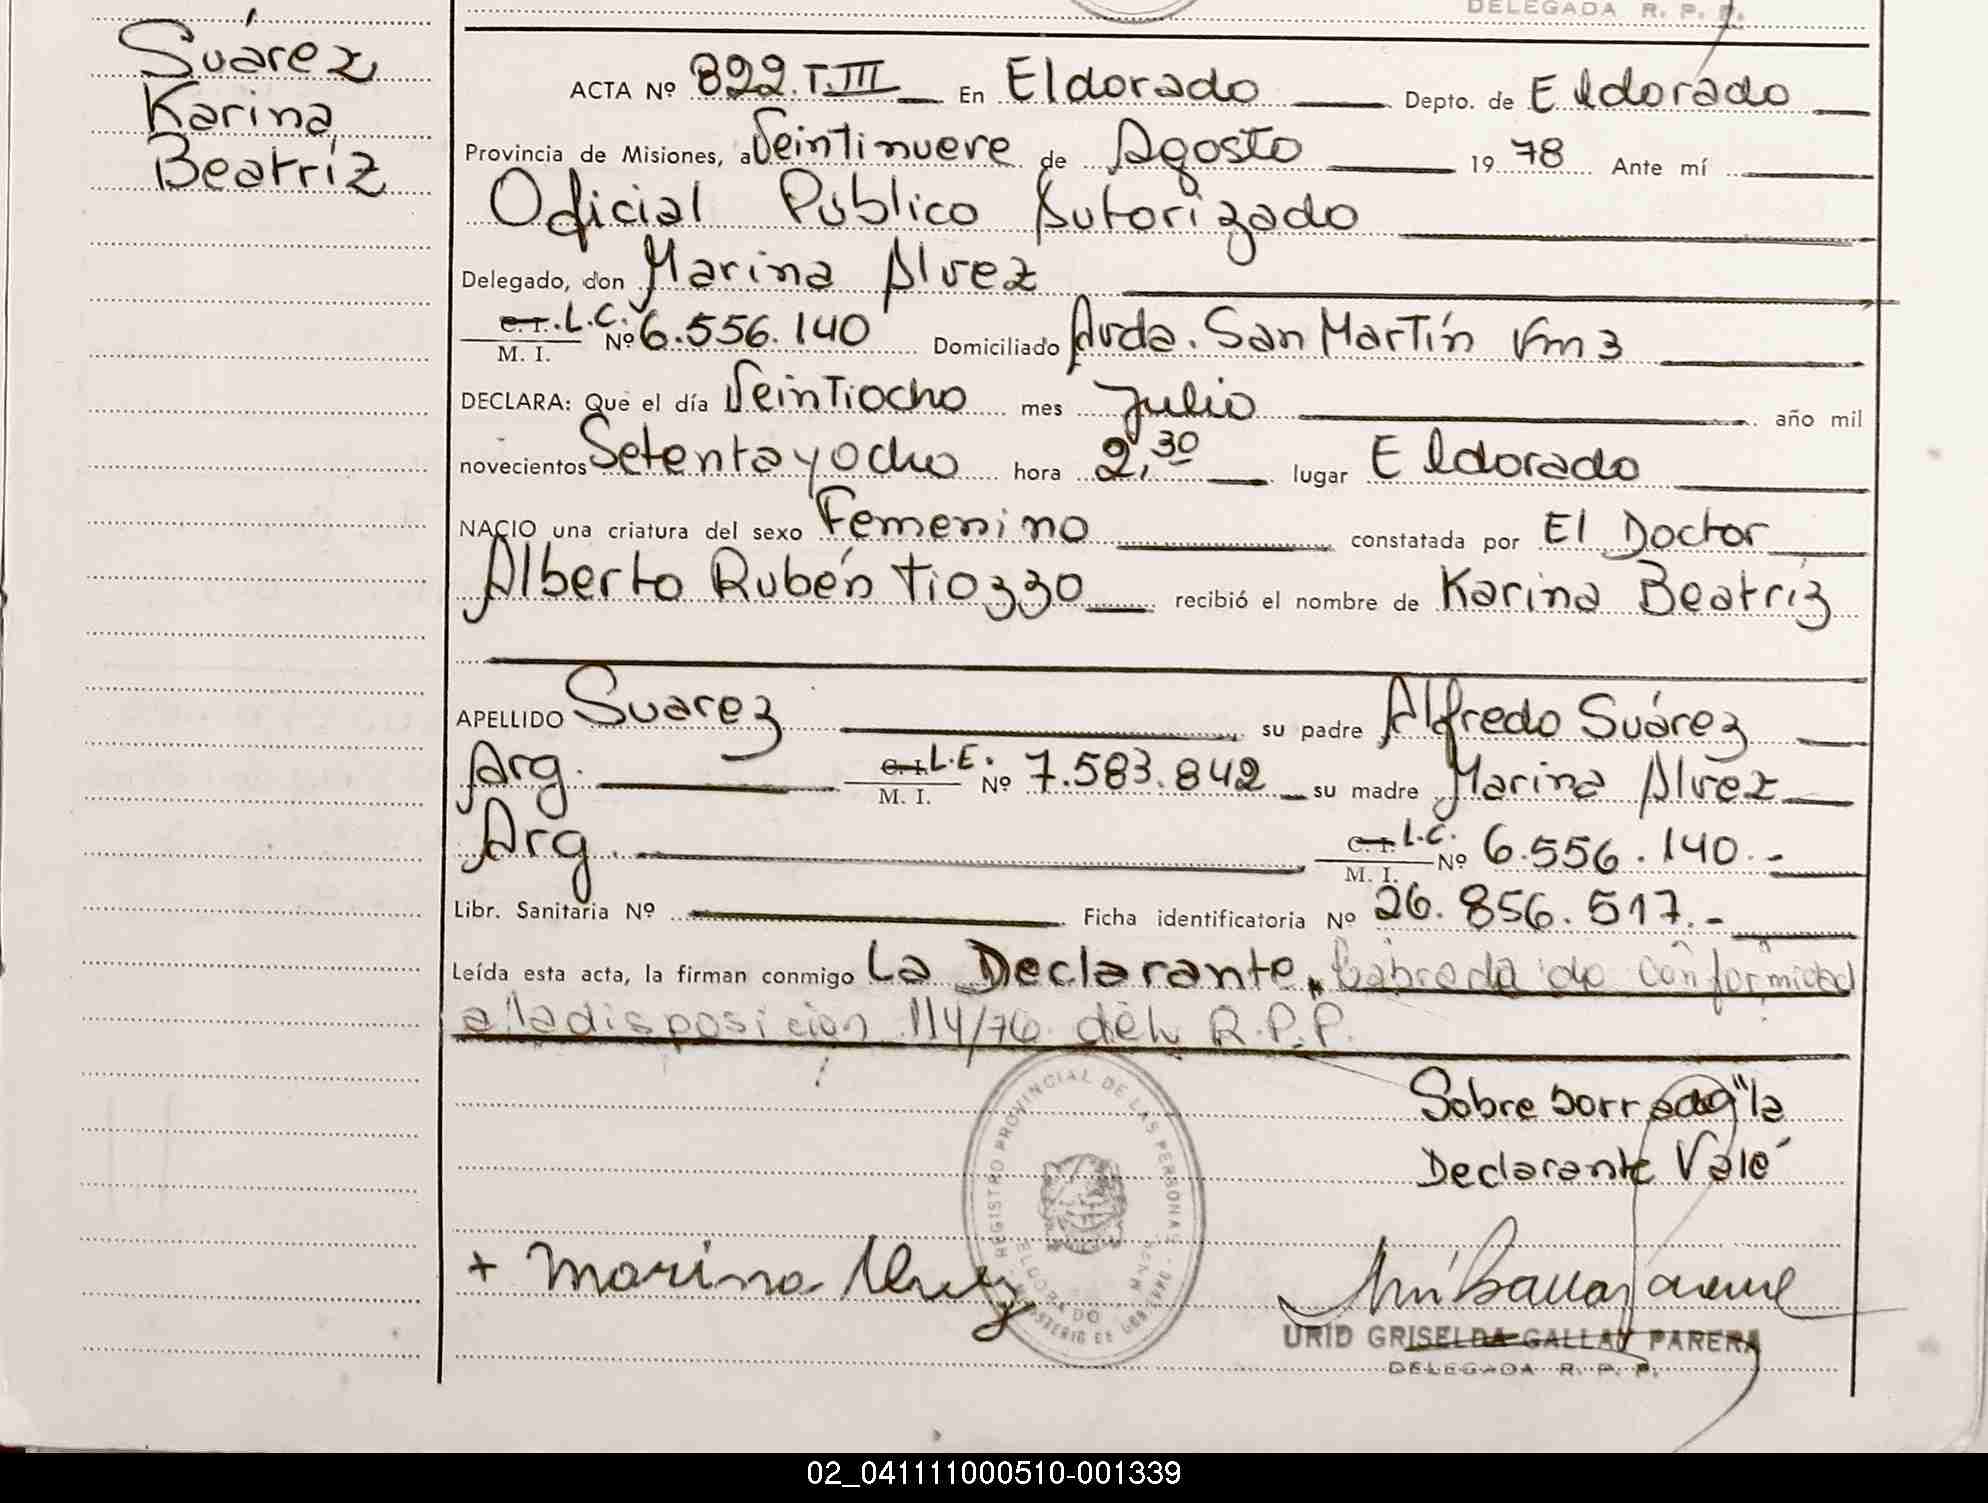 DELEGADA R. P. P.
Suárez
Karina
Beatríz
ACTA Nº 822.T.III En Eldorado Depto. de Eldorado
Provincia de Misiones, a Veintinueve de Agosto 19 78 Ante mí
Oficial Público Autorizado
Delegado, don Marina Alvez
C. I. L.C. Nº 6.556.140 Domiciliado Avda. San Martín Km 3
M. I.
DECLARA: Que el día Veintiocho mes Julio año mil
novecientos Setentayocho hora 2,30 lugar Eldorado
NACIO una criatura del sexo Femenino constatada por El Doctor
Alberto Rubén Tiozzo recibió el nombre de Karina Beatríz
APELLIDO Suarez su padre Alfredo Suárez
Arg. C. I. L.E. Nº 7.583.842 su madre Marina Alvez
M. I.
Arg. C. I. L.C. Nº 6.556.140.-
M. I.
Libr. Sanitaria Nº Ficha identificatoria Nº 26.856.517.-
Leída esta acta, la firman conmigo La Declarante, Labrada de conformidad
a la disposición 114/76 del R.P.P.
Sobre borrado "la
Declarante Vale"
REGISTRO PROVINCIAL DE LAS PERSONAS
ELDORADO
MINISTERIO DE GOB
+ Marina Alvez
URID GRISELDA GALLAY PARERA
DELEGADA R. P. P.
02_041111000510-001339